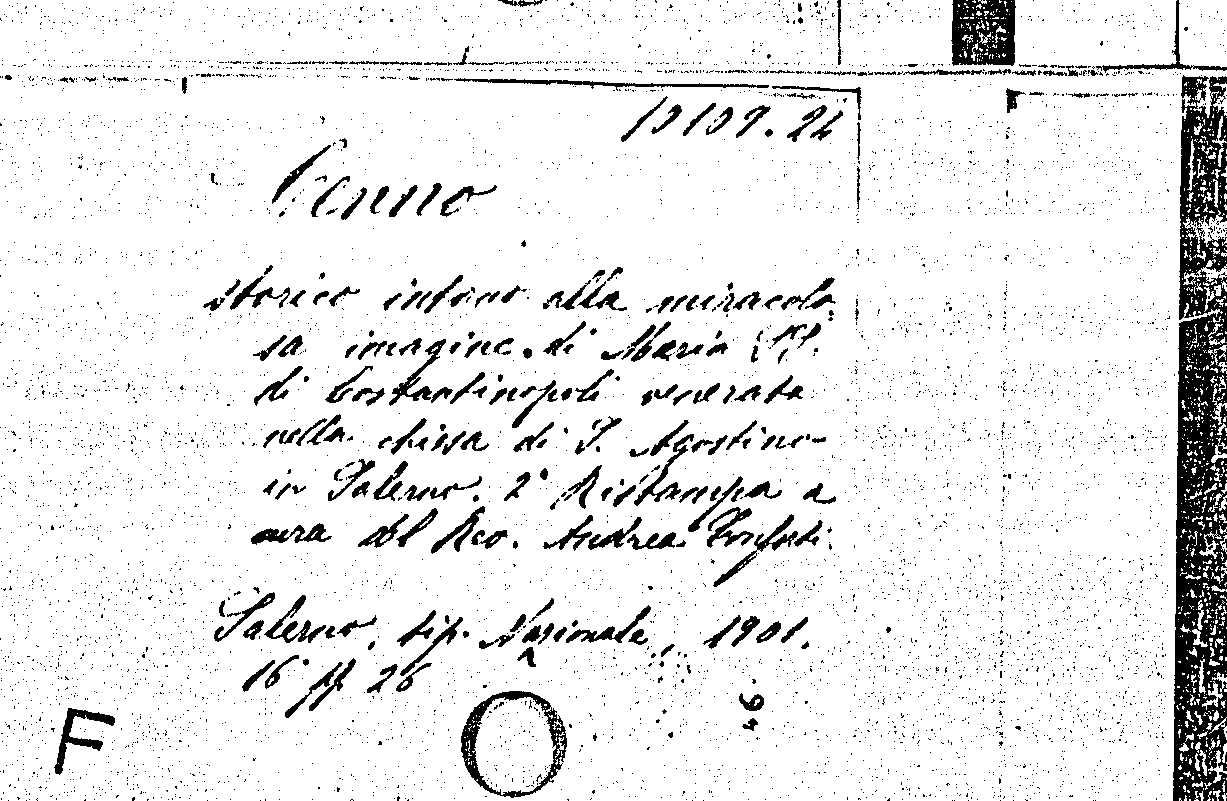 10109.24
Cenno
storico intorno alla miracolo-
sa imagine di Maria SS.
di Costantinopoli venerata
nella chiesa di S. Agostino
in Salerno. 2ª Ristampa a
cura del Rev. Andrea Conforti.
Salerno, tip. Nazionale, 1901.
16° pp 26
46
F